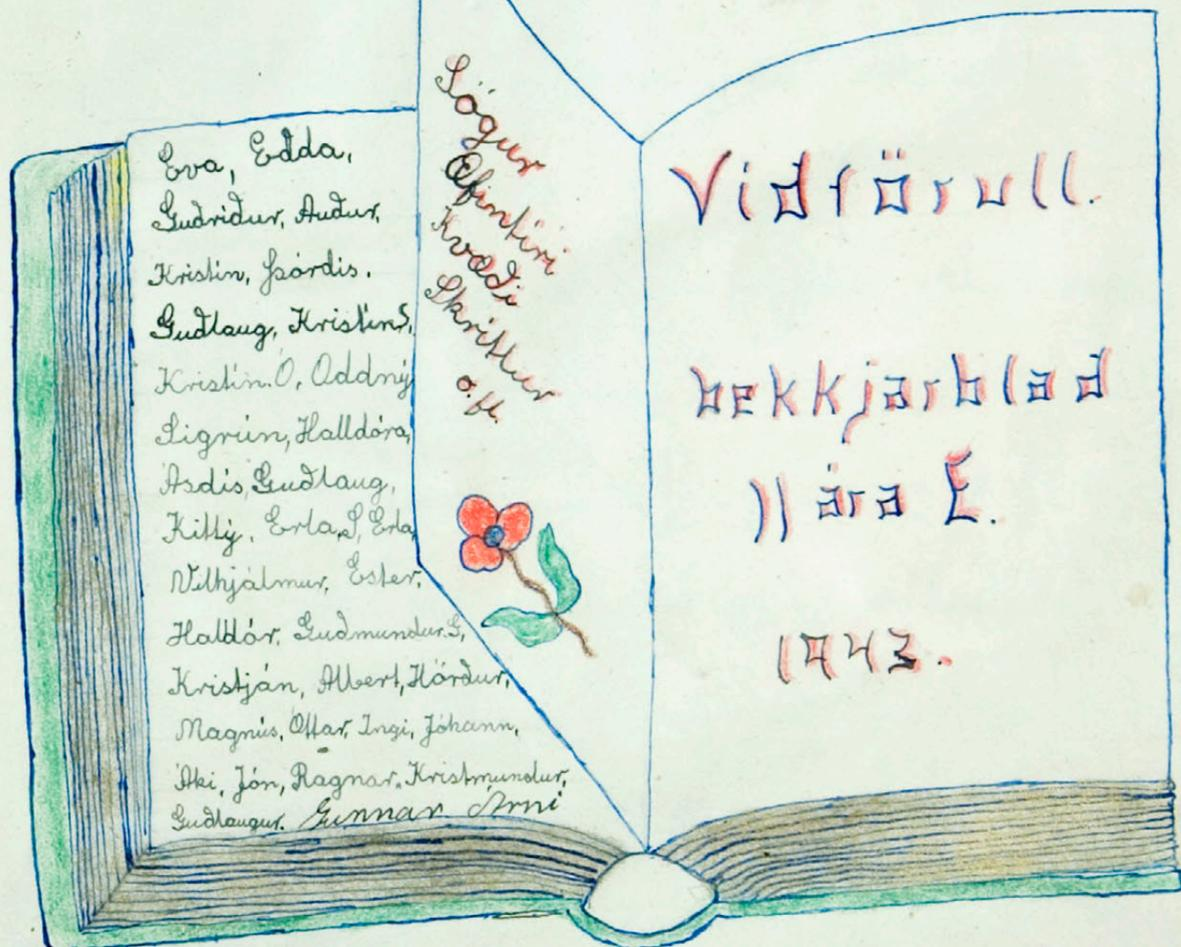 Eva, Edda,
Guðriður, Auður,
Kristín, Þórdis.
Guðlaug, Kristín S,
Kristín. Ó, Oddný
Sigrún, Halldóra,
Asdis, Guðlaug,
Kittý, Erla, S, Erla
Vilhjálmur, Ester,
Haldór, Guðmundur. G,
Kristján, Albert, Hörður,
Magnús, Ottar, Ingi, Jóhann,
Áki, Jón, Ragnar, Kristmundur,
Guðlaugur. Gunnar Árni
Sögur
Æfintíri
Kvæði
Skrítlur
o. fl.
Vidförull.
bekkjarblad
11 ára E.
1943.